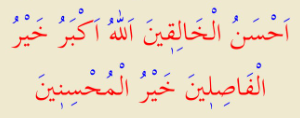 اَحْسَنُ الْخَالِقِينَ اَللّٰهُ اَكْبَرُ خَيْرُ
الْفَاصِلِينَ خَيْرُ الْمُحْسِنِينَ